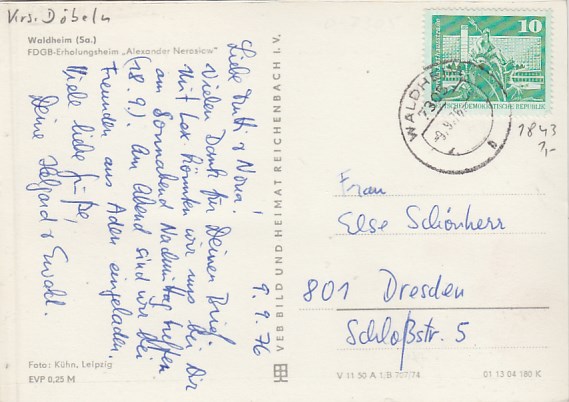 Krs. Döbeln
Waldheim (Sa.)
FDGB-Erholungsheim „Alexander Neroslow"
9. 9. 76
Liebe Mutti & Nora!
Vielen Dank für Deinen Brief.
Mit Lok. könnten wir uns bei Dir
am Sonnabend Nachmittag treffen
(18. 9.). Am Abend sind wir bei
Freunden aus Aden eingeladen.
Viele liebe Grüße!
Deine Helgard & Ewald.
Foto: Kühn, Leipzig
EVP 0,25 M
VEB BILD UND HEIMAT REICHENBACH I. V.
10
DEUTSCHE DEMOKRATISCHE REPUBLIK
WALDHEIM
7305
b
1843
1,-
Frau
Else Schönherr
801 Dresden
Schloßstr. 5
V 11 50 A 1/B 707/74
01 13 04 180 K